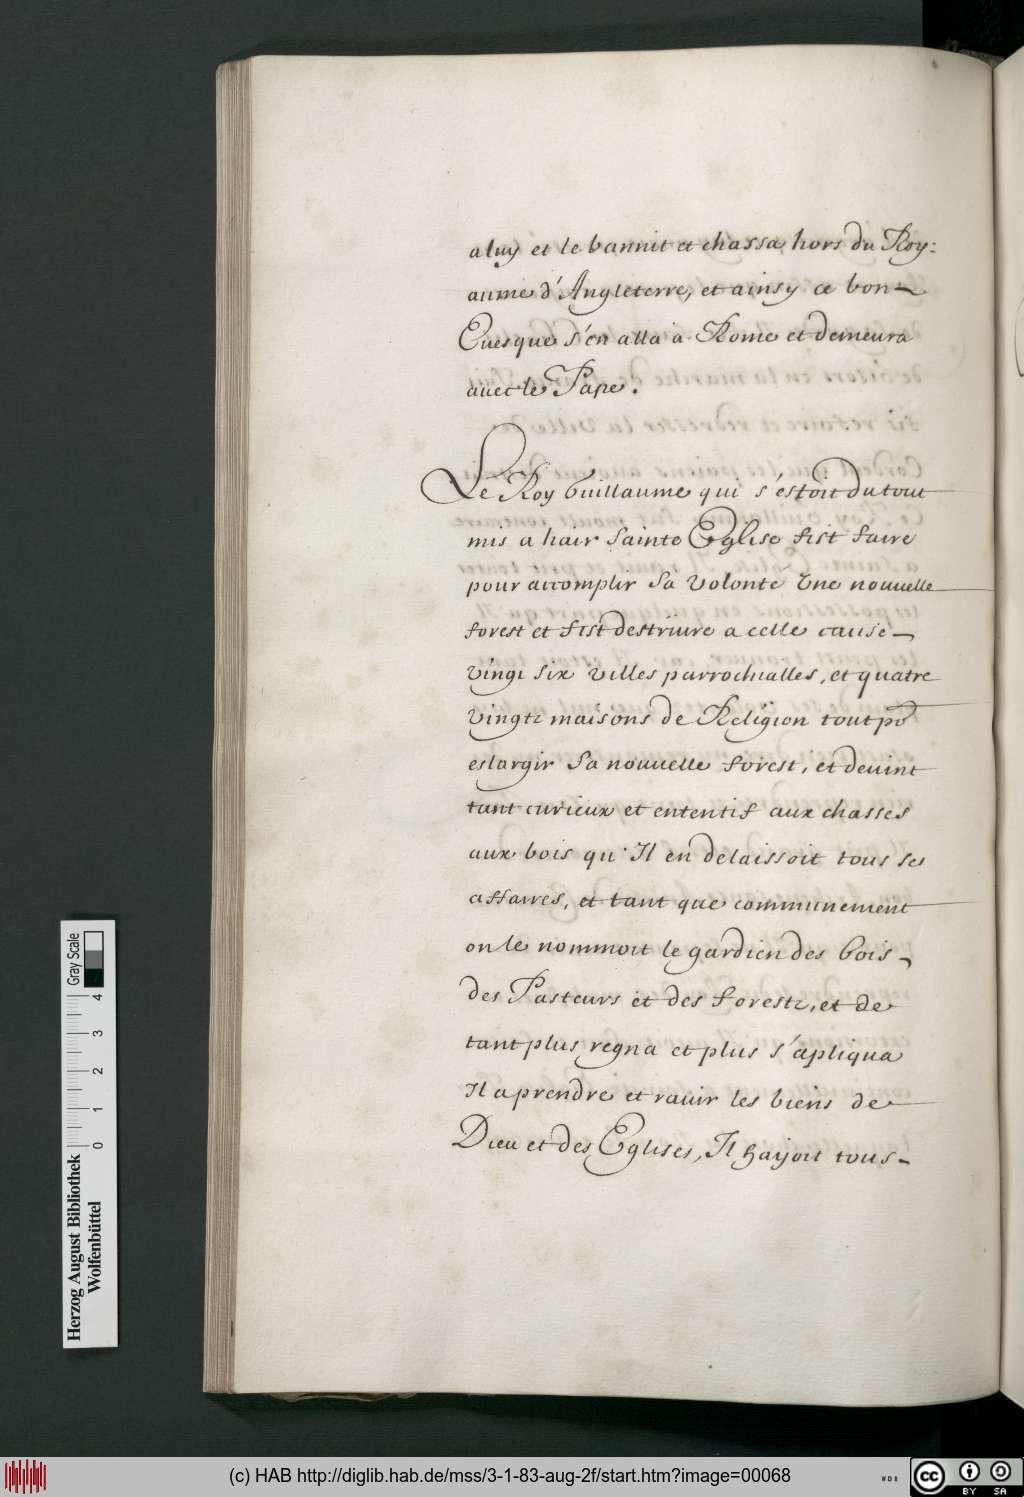 aluy et le bannit et chassa hors du Roy:
aume d'Angleterre, et ainsy ce bon
Euesque s'en alla a Rome et demeura
auec le Pape.
Le Roy Guillaume qui s'estoit du tout
mis a hair Sainte Eglise fist faire
pour accomplir sa volonté Vne nouuelle
forest et fist destriure a celle cause
vingt six villes parrochialles, et quatre
vingtz maisons de Religion tout po
eslargir sa nouuelle forest, et deuint
tant curieux et ententif aux chasses
aux bois qu'Il en delaissoit tous ses
affaires, et tant que communement
on le nommoit le gardien des bois
des Pasteurs et des forestz, et de
tant plus regna et plus s'apliqua
Il aprendre et rauir les biens de
Dieu et des Eglises, Il hayoit tous
Herzog August Bibliothek
Wolfenbüttel
0 1 2 3 4
Gray Scale
(c) HAB http://diglib.hab.de/mss/3-1-83-aug-2f/start.htm?image=00068
WDB
cc BY SA